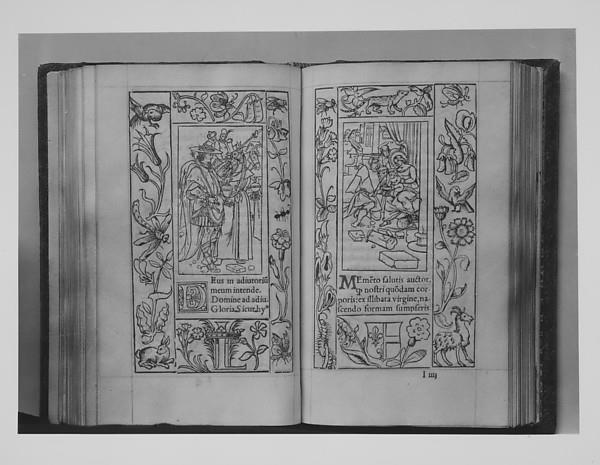 DEus in adiutoriũ
meum intende.
Domine ad adiu.
Gloria. Sicut. hy
MEmẽto salutis auctor,
ꝙ nostri quõdam cor-
poris: ex illibata virgine, na-
scendo formam sumpseris
I iiij